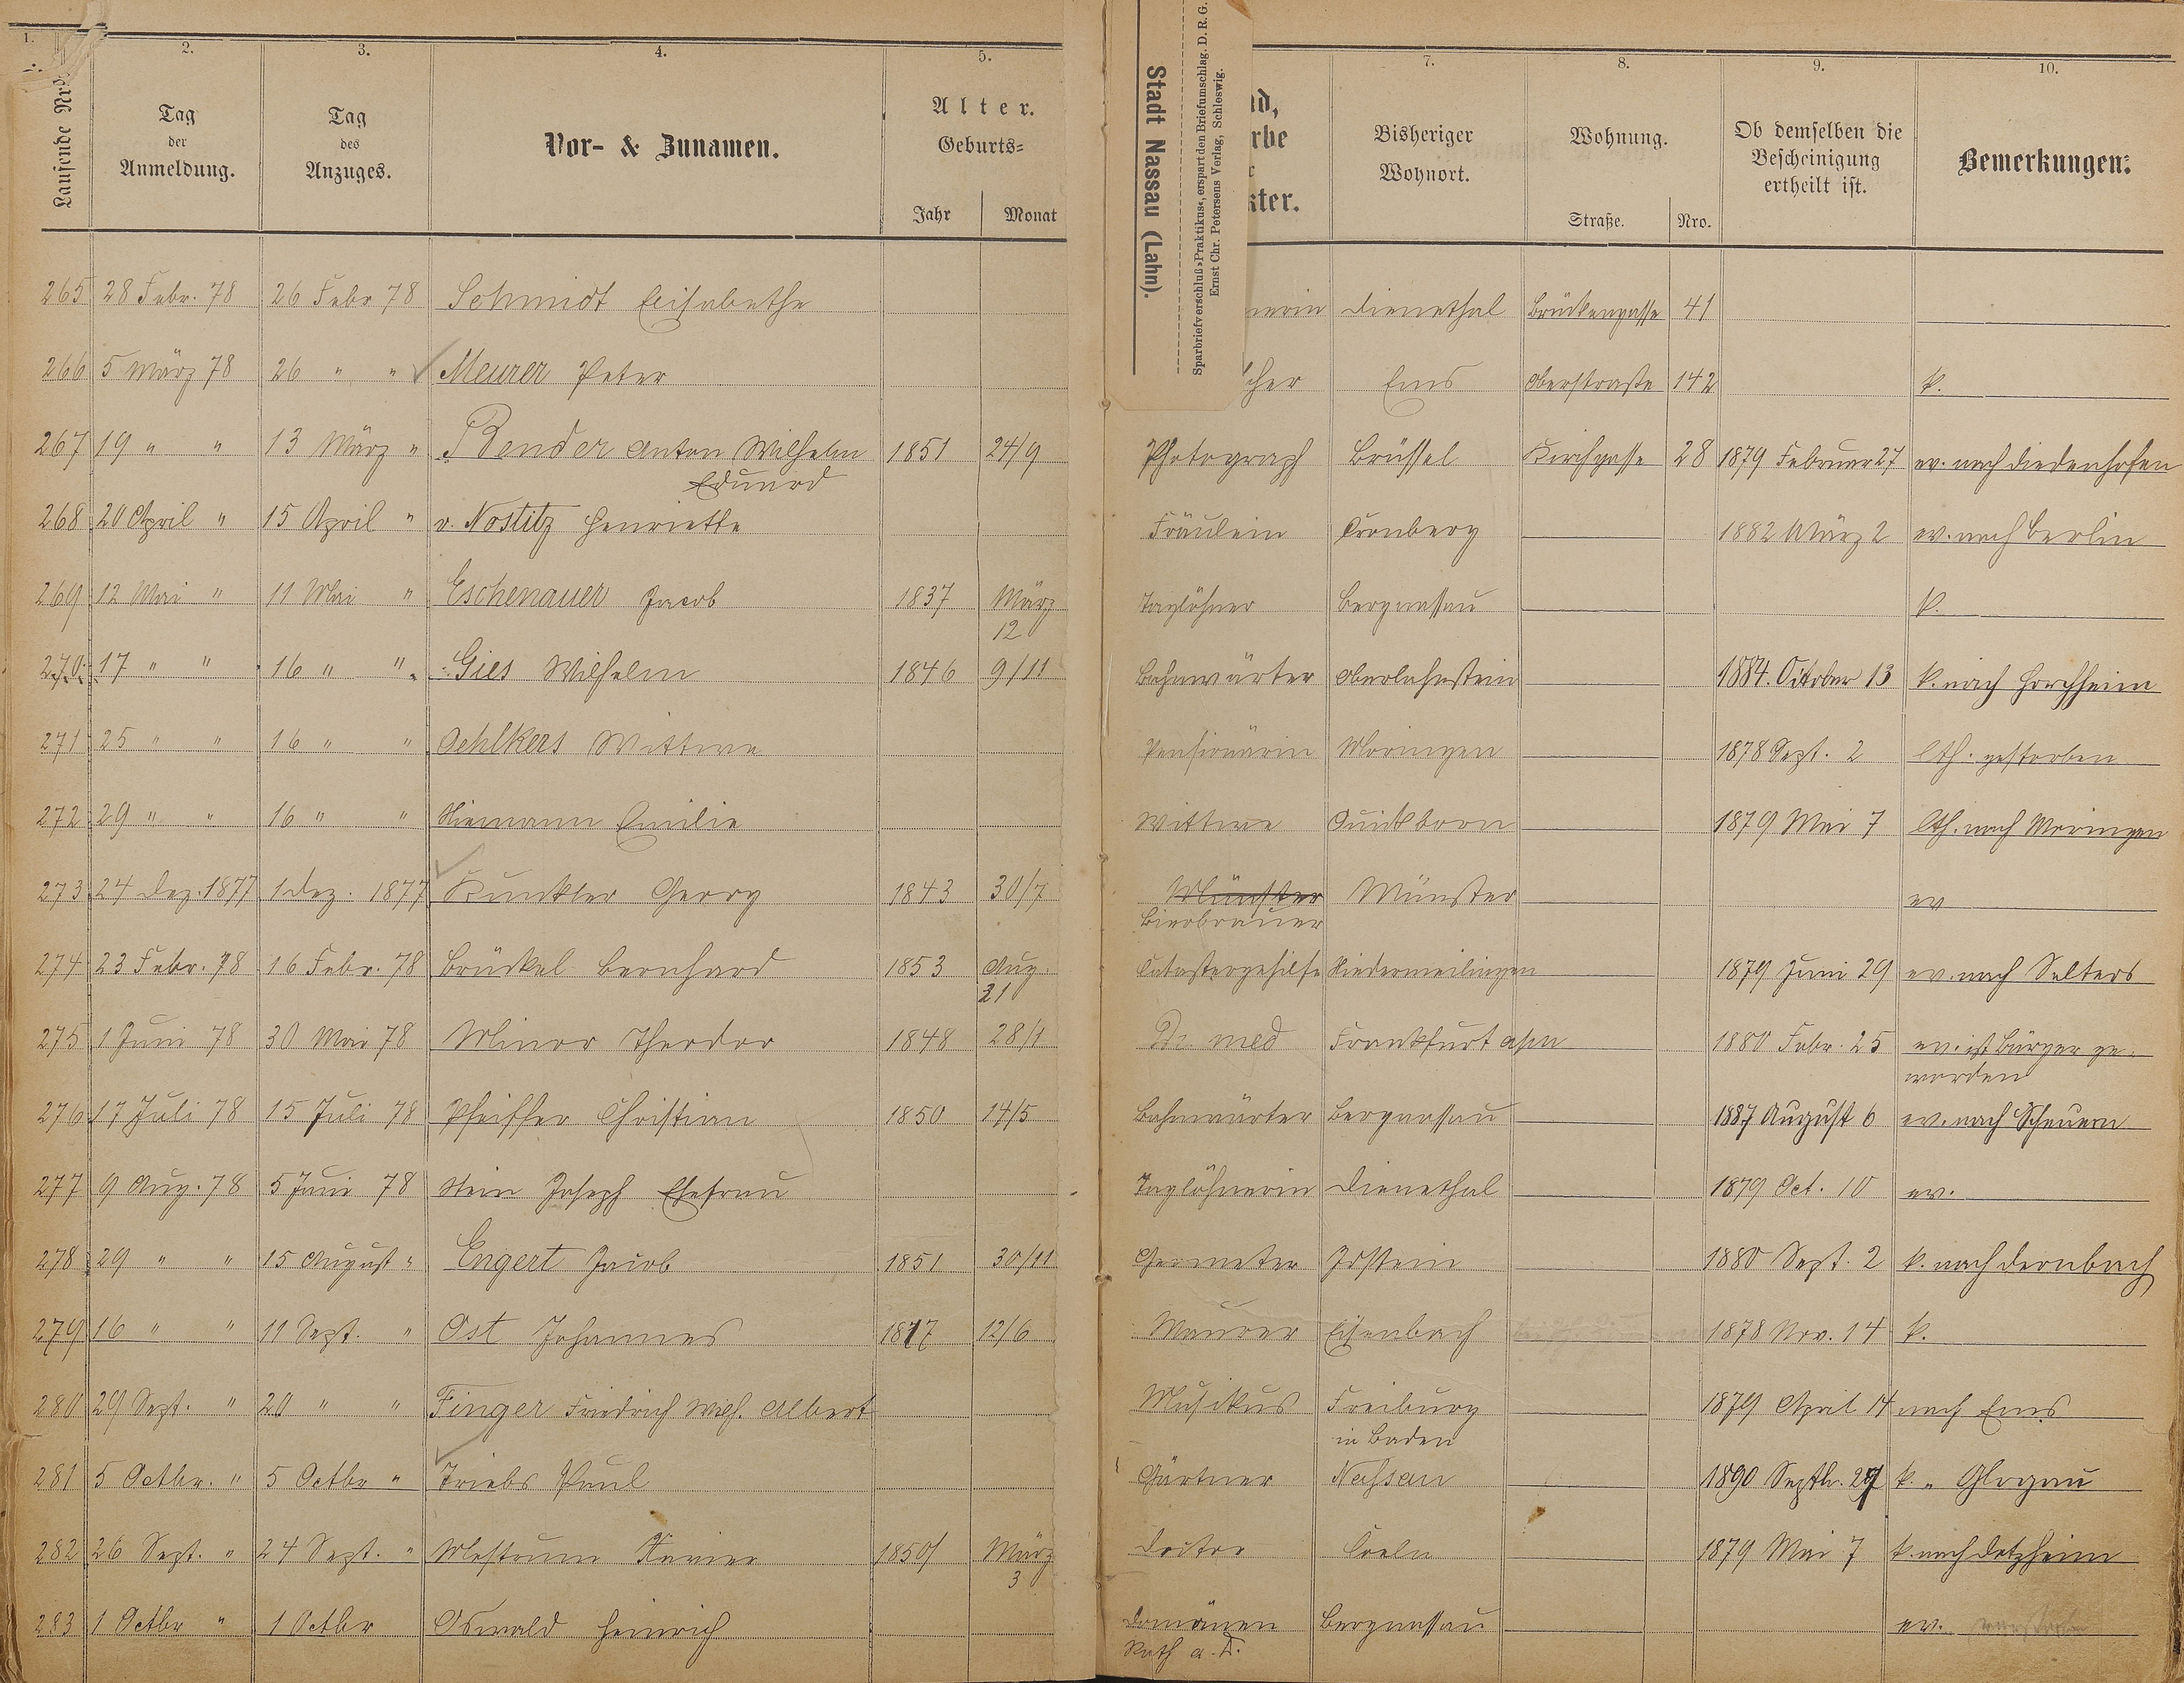 1. 2. 3. 4. 5. 7. 8. 9. 10.
Laufende Nr.
Tag der Anmeldung.
Tag des Anzuges.
Vor- & Zunamen.
Alter.
Geburts=
Jahr Monat
Stadt Nassau (Lahn).
Sparbriefverschluß »Praktikus«, erspart den Briefumschlag. D. R. G.
Ernst Chr. Petersens Verlag, Schleswig.
Bisheriger Wohnort.
Wohnung.
Straße. Nro.
Ob demselben die Bescheinigung ertheilt ist.
Bemerkungen.
265 28 Febr. 78 26 Febr 78 Schmidt Elisabethe nerin Dienethal Brückengasse 41
266 5 März 78 26 " " Meurer Peter cher Ems Oberstraße 142 k.
267 19 " " 13 März " Bender Anton Wilhelm 1851 24/9 Photograph Brüssel Kirchgasse 28 1879 Februar 27 ev. nach Diedenhofen
Eduard
268 20 April " 15 April " v. Nostitz Henriette Fräulein Cronberg 1882 März 2 ev. nach Berlin
269 12 Mai " 11 Mai " Eschenauer Jacob 1837 März Taglöhner Bergnassau k.
12
270. 17 " " 16 " " Gies Wilhelm 1846 9/11 Bahnwärter Oberlahnstein 1884. October 13 k. nach Horchheim
271 25 " " 16 " " Oehlkers Wittwe Pensionärin Moringen 1878 Sept. 2 lth. gestorben
272 29 " " 16 " " Niemann Emilie Wittwe Quickborn 1879 Mai 7 lth. nach Moringen
273 24 Dez. 1877 1 Dez. 1877 Kunkler Georg 1843 30/7 Münster Münster ev
Bierbrauer
274 23 Febr. 78 16 Febr. 78 Brückel Bernhard 1853 Aug. Catastergehilfe Niedermeilingen 1879 Juni 29 ev. nach Selters
21
275 1 Juni 78 30 Mai 78 Minor Theodor 1848 28/1 Dr. med Frankfurt a/m 1880 Febr. 25 ev. ist Bürger ge-
worden
276 17 Juli 78 15 Juli 78 Pfeiffer Christian 1850 14/5 Bahnwärter Bergnassau 1887 August 6 ev. nach Scheuern
277 9 Aug. 78 5 Juni 78 Stein Joseph Ehefrau Taglöhnerin Dienethal 1879 Oct. 10 ev.
278 29 " " 15 August " Engert Jacob 1851 30/11 Geometer Idstein 1880 Sept. 2 k. nach Dernbach
279 16 " " 11 Sept. " Ost Johannes 1817 12/6 Maurer Eisenbach 1878 Nov. 14 k.
280 29 Sept. " 20 " " Finger Friedrich Wilh. Albert Musikus Freiburg 1879 April 14 nach Ems
in Baden
281 5 Octbr. " 5 Octbr " Triebs Paul Gärtner Nassau 1890 Septbr. 27 k. " Glogau
282 26 Sept. " 24 Sept. " Mestrum Xavier 1850 März Doctor Coeln 1879 Mai 7 k. nach Dotzheim
3
283 1 Octbr " 1 Octbr Oswald Heinrich Domänen Bergnassau ev.
Rath a. D.